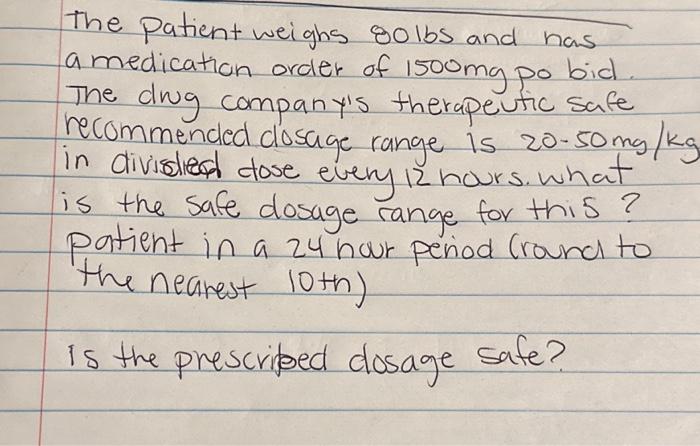 The patient weighs 80 lbs and has
a medication order of 1500mg po bid.
The drug company's therapeutic safe
recommended dosage range is 20-50mg/kg
in divided dose every 12 hours. what
is the safe dosage range for this ?
patient in a 24 hour period (round to
the nearest 10th)
Is the prescribed dosage safe?